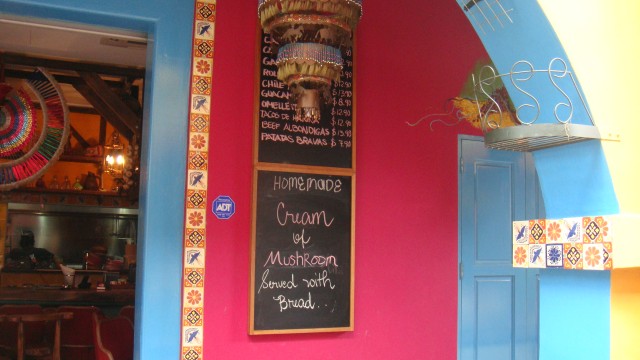 CHILE
GUACAM
OMELETTE $ 8.90
TACOS DE $ 12.90
BEEF ALBONDIGAS $ 13.90
PATATAS BRAVAS $ 7.90
ADT
HOMEMADE
Cream
of
MUSHROOM
Served with
Bread...